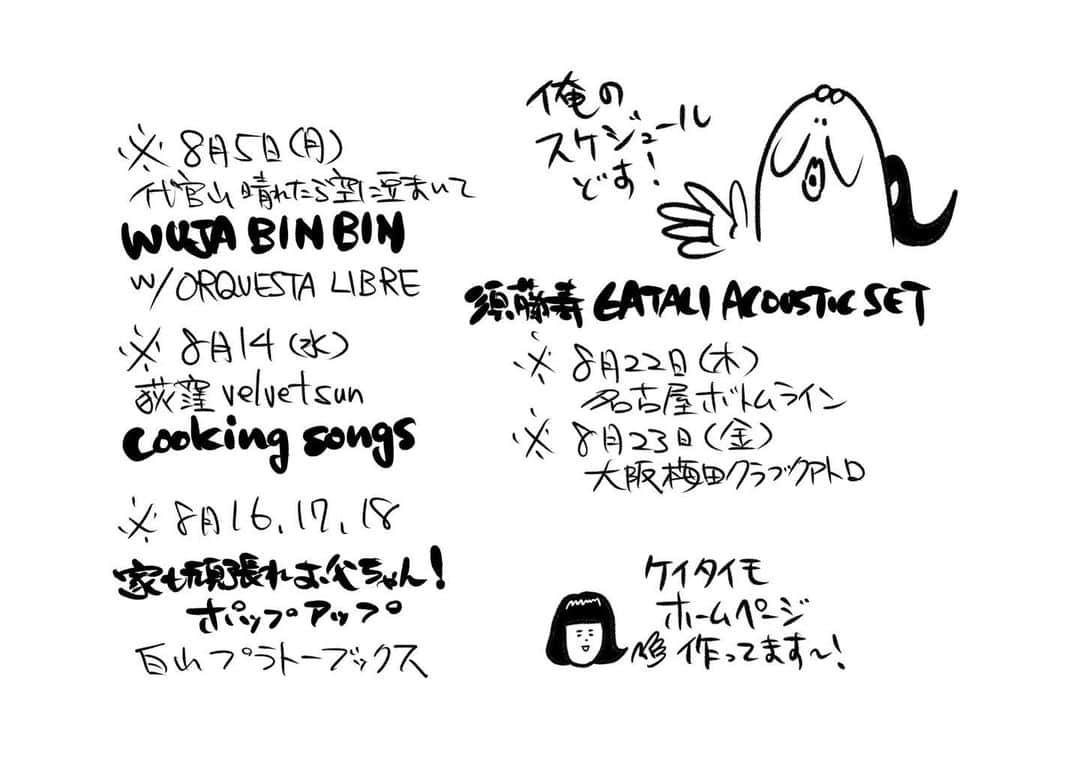 俺の
スケジュール
どす!
※8月5日(月)
代官山 晴れたら空に豆まいて
WUJA BIN BIN
w/ORQUESTA LIBRE
※8月14(水)
荻窪 velvetsun
cooking songs
※8月16、17、18
家も頑張れお父ちゃん!
ポップアップ
白山プラトーブックス
須藤寿 GATALI ACOUSTIC SET
※8月22日(木)
名古屋ボトムライン
※8月23日(金)
大阪梅田クラブクアトロ
ケイタイモ
ホームページ
作ってます〜!